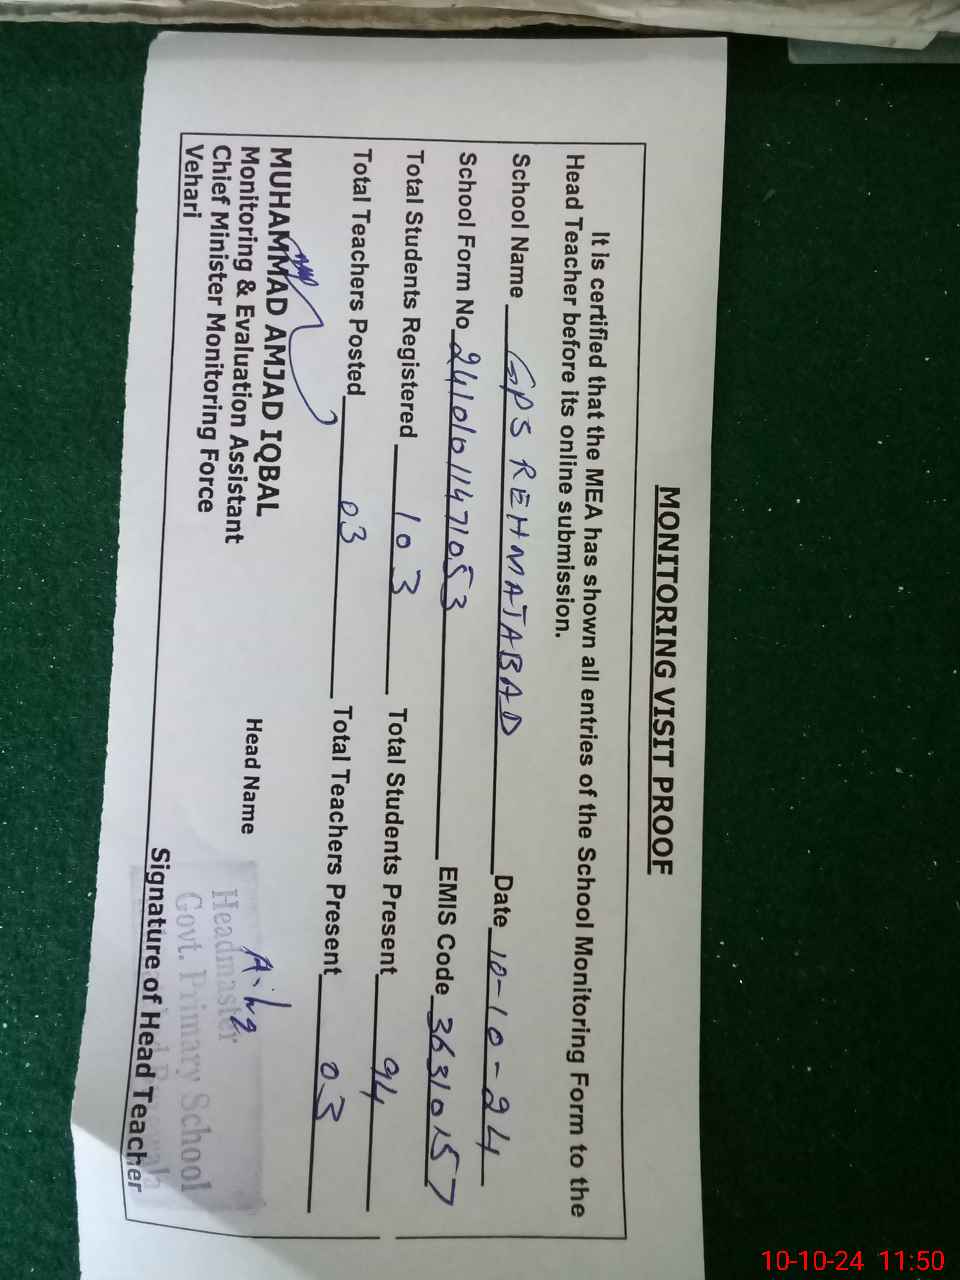 MONITORING VISIT PROOF
It is certified that the MEA has shown all entries of the School Monitoring Form to the
Head Teacher before its online submission.
School Name GPS REHMATABAD Date 10-10-24
School Form No 24101011471053 EMIS Code 3631057
Total Students Registered 103 Total Students Present 94
Total Teachers Posted 03 Total Teachers Present 03
MUHAMMAD AMJAD IQBAL
Monitoring & Evaluation Assistant
Chief Minister Monitoring Force
Vehari
Head Name
Headmaster
Govt. Primary School
Signature of Head Teacher
10-10-24 11:50